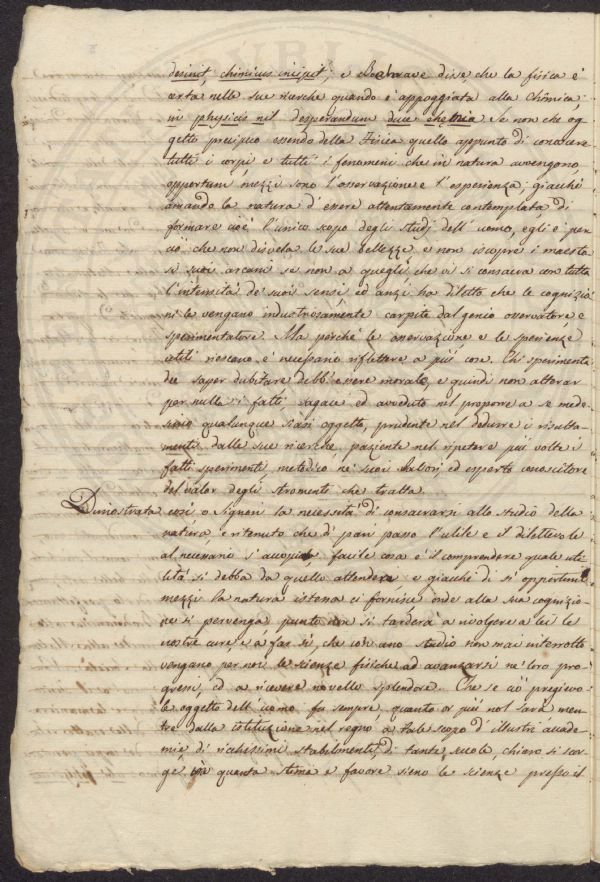 desinit, chimicus incipit; e Boehraave disse, che la fisica è
certa nelle sue ricerche quando è appoggiata alla Chimica;
in physicis nil desperandum duce chemia. Se non che og
getto precipuo essendo della Fisica quello appunto di conoscere
tutti i corpi e tutti i fenomeni che in natura avvengono,
opportuni mezzi sono l'osservazione e l'esperienza; giacchè
amando la natura d'essere attentamente contemplata, di
formare cioè l'unico scopo degli studj dell'uomo, egli è per
ciò che non disvela le sue bellezze e non iscopre i maesto
si suoi arcani se non a quegli che vi si consacra con tutta
l'intensità de' suoi sensi, ed anzi ha diletto che le cognizio
ni le vengano industrosamente carpite dal genio osservatore, e
sperimentatore. Ma perchè le osservazioni e le sperienze
utili riescano, è necessario riflettere a più cose. Chi sperimenta
dee saper dubitare debb'essere morale, e quindi non alterar
per nulla i fatti sagace ed avveduto nel proporre a se mede
simo qualunque siasi oggetto, prudente nel dedurre i risulta
menti dalle sue ricerche, paziente nel ripetere più volte i
fatti sperimenti, metodico ne' suoi lavori, ed esperto conoscitore
del valor degli stromenti che tratta.
Dimostrata così o Signori la necessità di consacrarsi allo studio della
natura, e ritenuto che di pari passo l'utile e il dilettevole
al necessario s'accoppia facile cosa è il comprendere quale uti
lità si debba da quello attendere e giacchè di sì opportuni
mezzi la natura istessa ci fornisce onde alla sua cognizio
ne si pervenga punto non si tarderà a rivolgere a lei le
nostre cure, e a far sì, che con uno studio non mai interrotto
vengano per noi le scienze fisiche ad avanzarsi ne' loro pro
gressi, ed a ricevere novello splendore. Che se ciò pregievo
le oggetto dell'uomo fu sempre, quanto or più nol sarà men
tre dalla istituzione nel regno a tale scopo d'illustri accade
mie, di ricchissimi stabilimenti, di tante scuole, chiaro si scor
ge, in quanta stima e favore sieno le scienze presso il